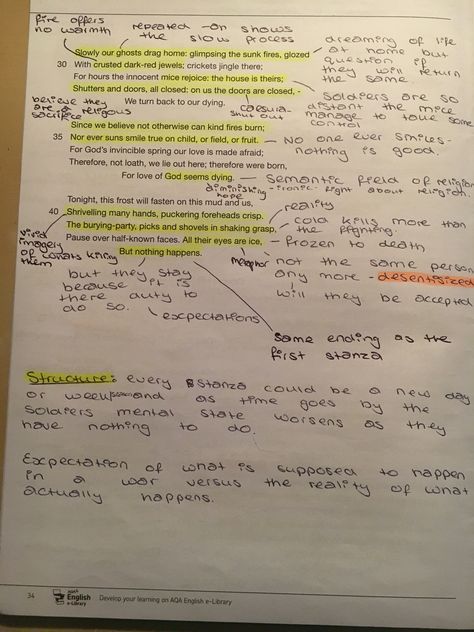 fire offers
no warmth
repeated -o- shows
the slow process
dreaming of life
at home but
question if
they will return
the same.
Slowly our ghosts drag home: glimpsing the sunk fires, glozed
30 With crusted dark-red jewels; crickets jingle there;
For hours the innocent mice rejoice: the house is theirs;
Shutters and doors, all closed: on us the doors are closed, -
We turn back to our dying.
caesura
shut out
Soldiers are so
distant the mice
manage to take some
control
believe they
are a religous
sacrifice
Since we believe not otherwise can kind fires burn;
35 Nor ever suns smile true on child, or field, or fruit.
For God's invincible spring our love is made afraid;
Therefore, not loath, we lie out here; therefore were born,
For love of God seems dying.
No one ever smiles-
nothing is good.
Semantic field of religion
-ironic- fight about religion.
diminishing
hope
Tonight, this frost will fasten on this mud and us,
40 Shrivelling many hands, puckering foreheads crisp.
The burying-party, picks and shovels in shaking grasp,
Pause over half-known faces. All their eyes are ice,
But nothing happens.
reality
cold kills more than
the fighting.
frozen to death
metaphor
not the same person
any more - desentisized
will they be accepted
vivid
imagery
of whats killing
them
but they stay
because it is
there duty to
do so.
expectations
same ending as the
first stanza
Structure: every stanza could be a new day
or week and as time goes by the
soldiers mental state worsens as they
have nothing to do.
Expectation of what is supposed to happen
in a war versus the reality of what
actually happens.
34
AQA
English
e-Library
Develop your learning on AQA English e-Library